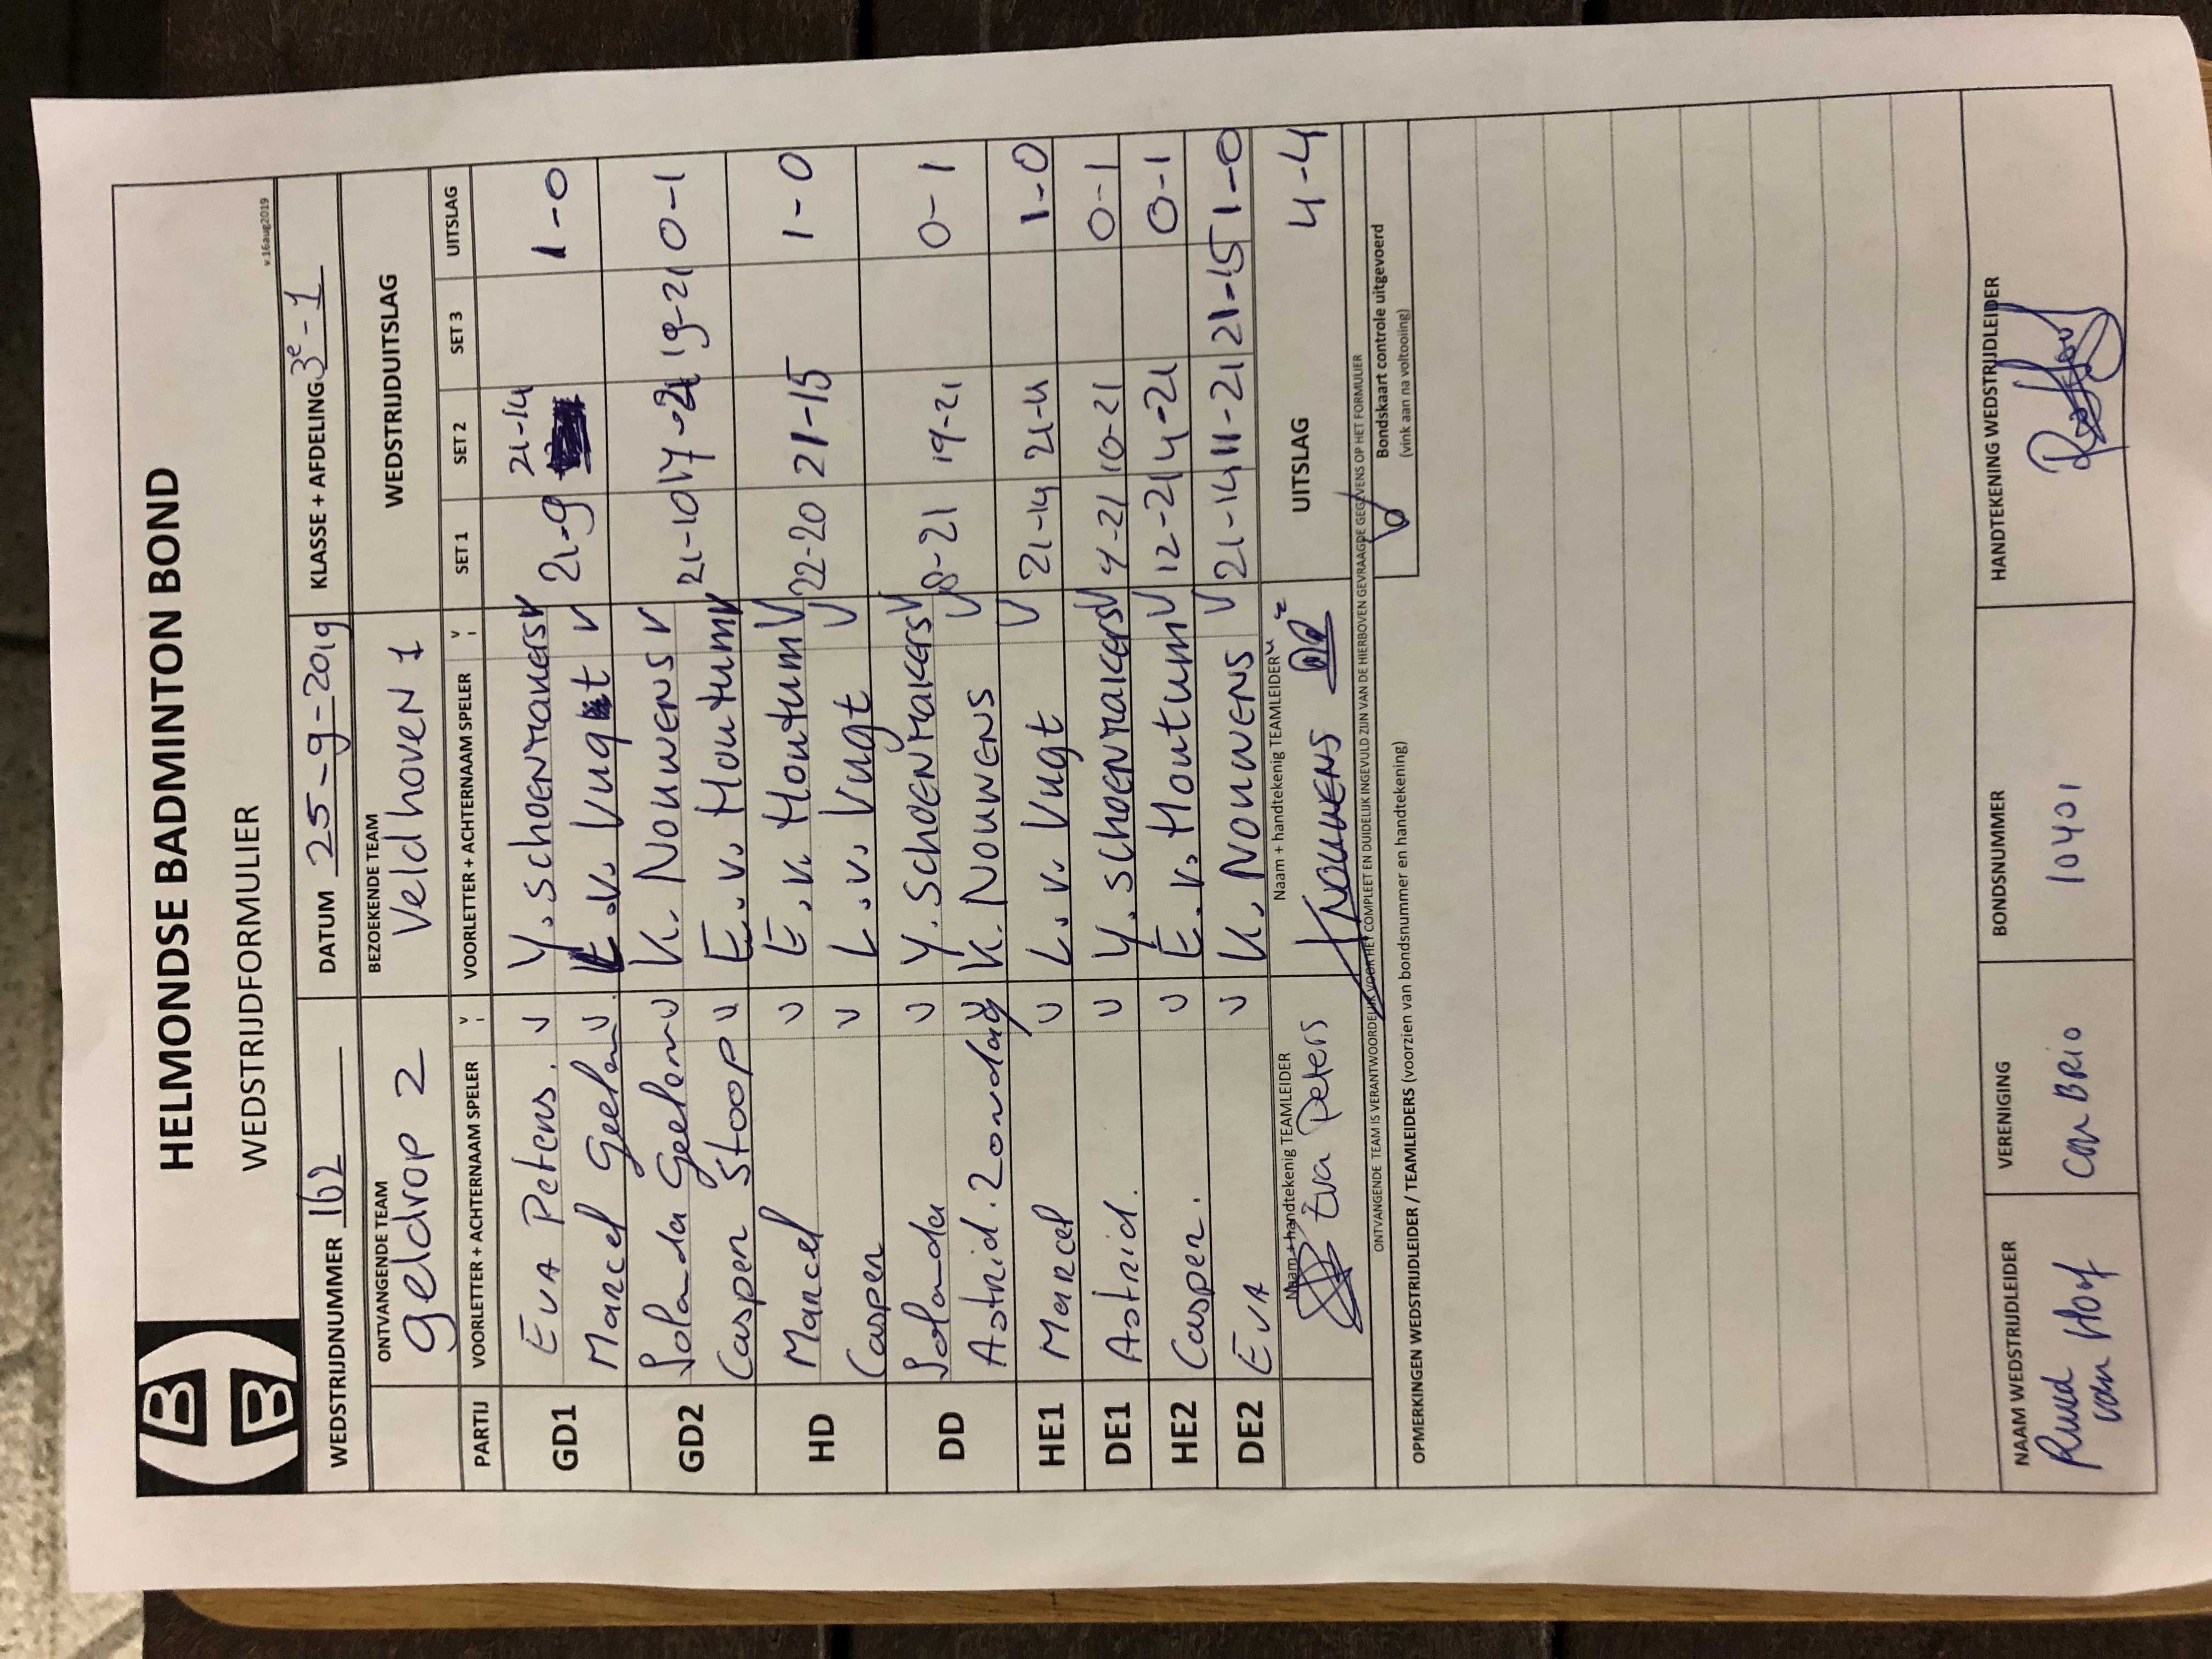 B
B
HELMONDSE BADMINTON BOND
WEDSTRIJDFORMULIER
v.16aug2019
WEDSTRIJDNUMMER 162 DATUM 25-9-2019 KLASSE + AFDELING 3e-1
ONTVANGENDE TEAM BEZOEKENDE TEAM WEDSTRIJDUITSLAG
geldrop 2 Veldhoven 1
PARTIJ VOORLETTER + ACHTERNAAM SPELER V VOORLETTER + ACHTERNAAM SPELER V SET 1 SET 2 SET 3 UITSLAG
GD1 Eva Peters. V Y. SCHOENMAKERS V 21-9 21-14 1-0
Marcel Geelen V L.v. Vugt V
GD2 Jolanda Geelen V K. NOUWENS V 21-10 17-21 19-21 0-1
Casper Stoop V E.v. Houtum V
HD Marcel V E.v. Houtum V 22-20 21-15 1-0
Casper V L.v. Vugt V
DD Jolanda V Y. SCHOENMAKERS V 8-21 19-21 0-1
Astrid. Zondag V K. NOUWENS V
HE1 Marcel V L.v. Vugt V 21-14 21-4 1-0
DE1 Astrid. V Y. SCHOENMAKERS V 4-21 10-21 0-1
HE2 Casper. V E.v. Houtum V 12-21 4-21 0-1
DE2 Eva V K. NOUWENS V 21-14 11-21 21-15 1-0
Naam + handtekenig TEAMLEIDER Naam + handtekenig TEAMLEIDER UITSLAG 4-4
Eva Peters K NOUWENS
ONTVANGENDE TEAM IS VERANTWOORDELIJK VOOR HET COMPLEET EN DUIDELIJK INGEVULD ZIJN VAN DE HIERBOVEN GEVRAAGDE GEGEVENS OP HET FORMULIER
V Bondskaart controle uitgevoerd
(vink aan na voltooiing)
OPMERKINGEN WEDSTRIJDLEIDER / TEAMLEIDERS (voorzien van bondsnummer en handtekening)
NAAM WEDSTRIJDLEIDER VERENIGING BONDSNUMMER HANDTEKENING WEDSTRIJDLEIDER
Ruud van Hof Con BRIO 10401